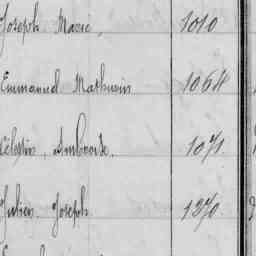 Joseph Marie, 1010
Emmanuel Mathurin 1064
Célestin, Ambroise. 1071
Julien, Joseph 1370